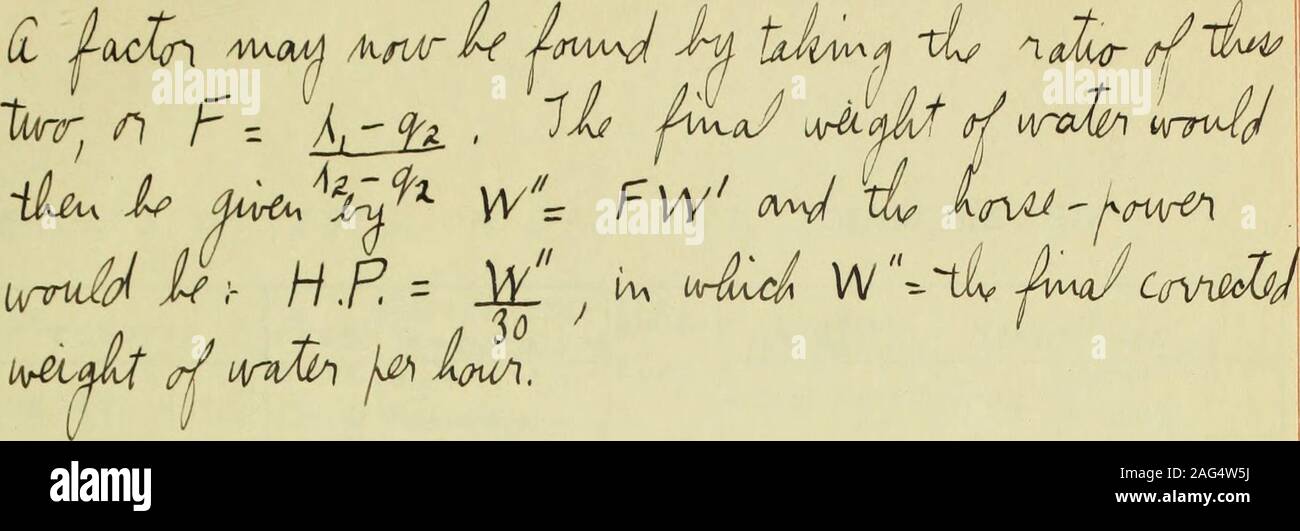 A factor may now be found by taking the ratio of these
two, or F = λ₁ - q₂ / λ₂ - q₂ . The final weight of water would
then be given by W" = FW' and the horse-power
would be: H.P. = W" / 30 , in which W" = the final corrected
weight of water per hour.
alamy
Image ID: 2AG4W5J
www.alamy.com